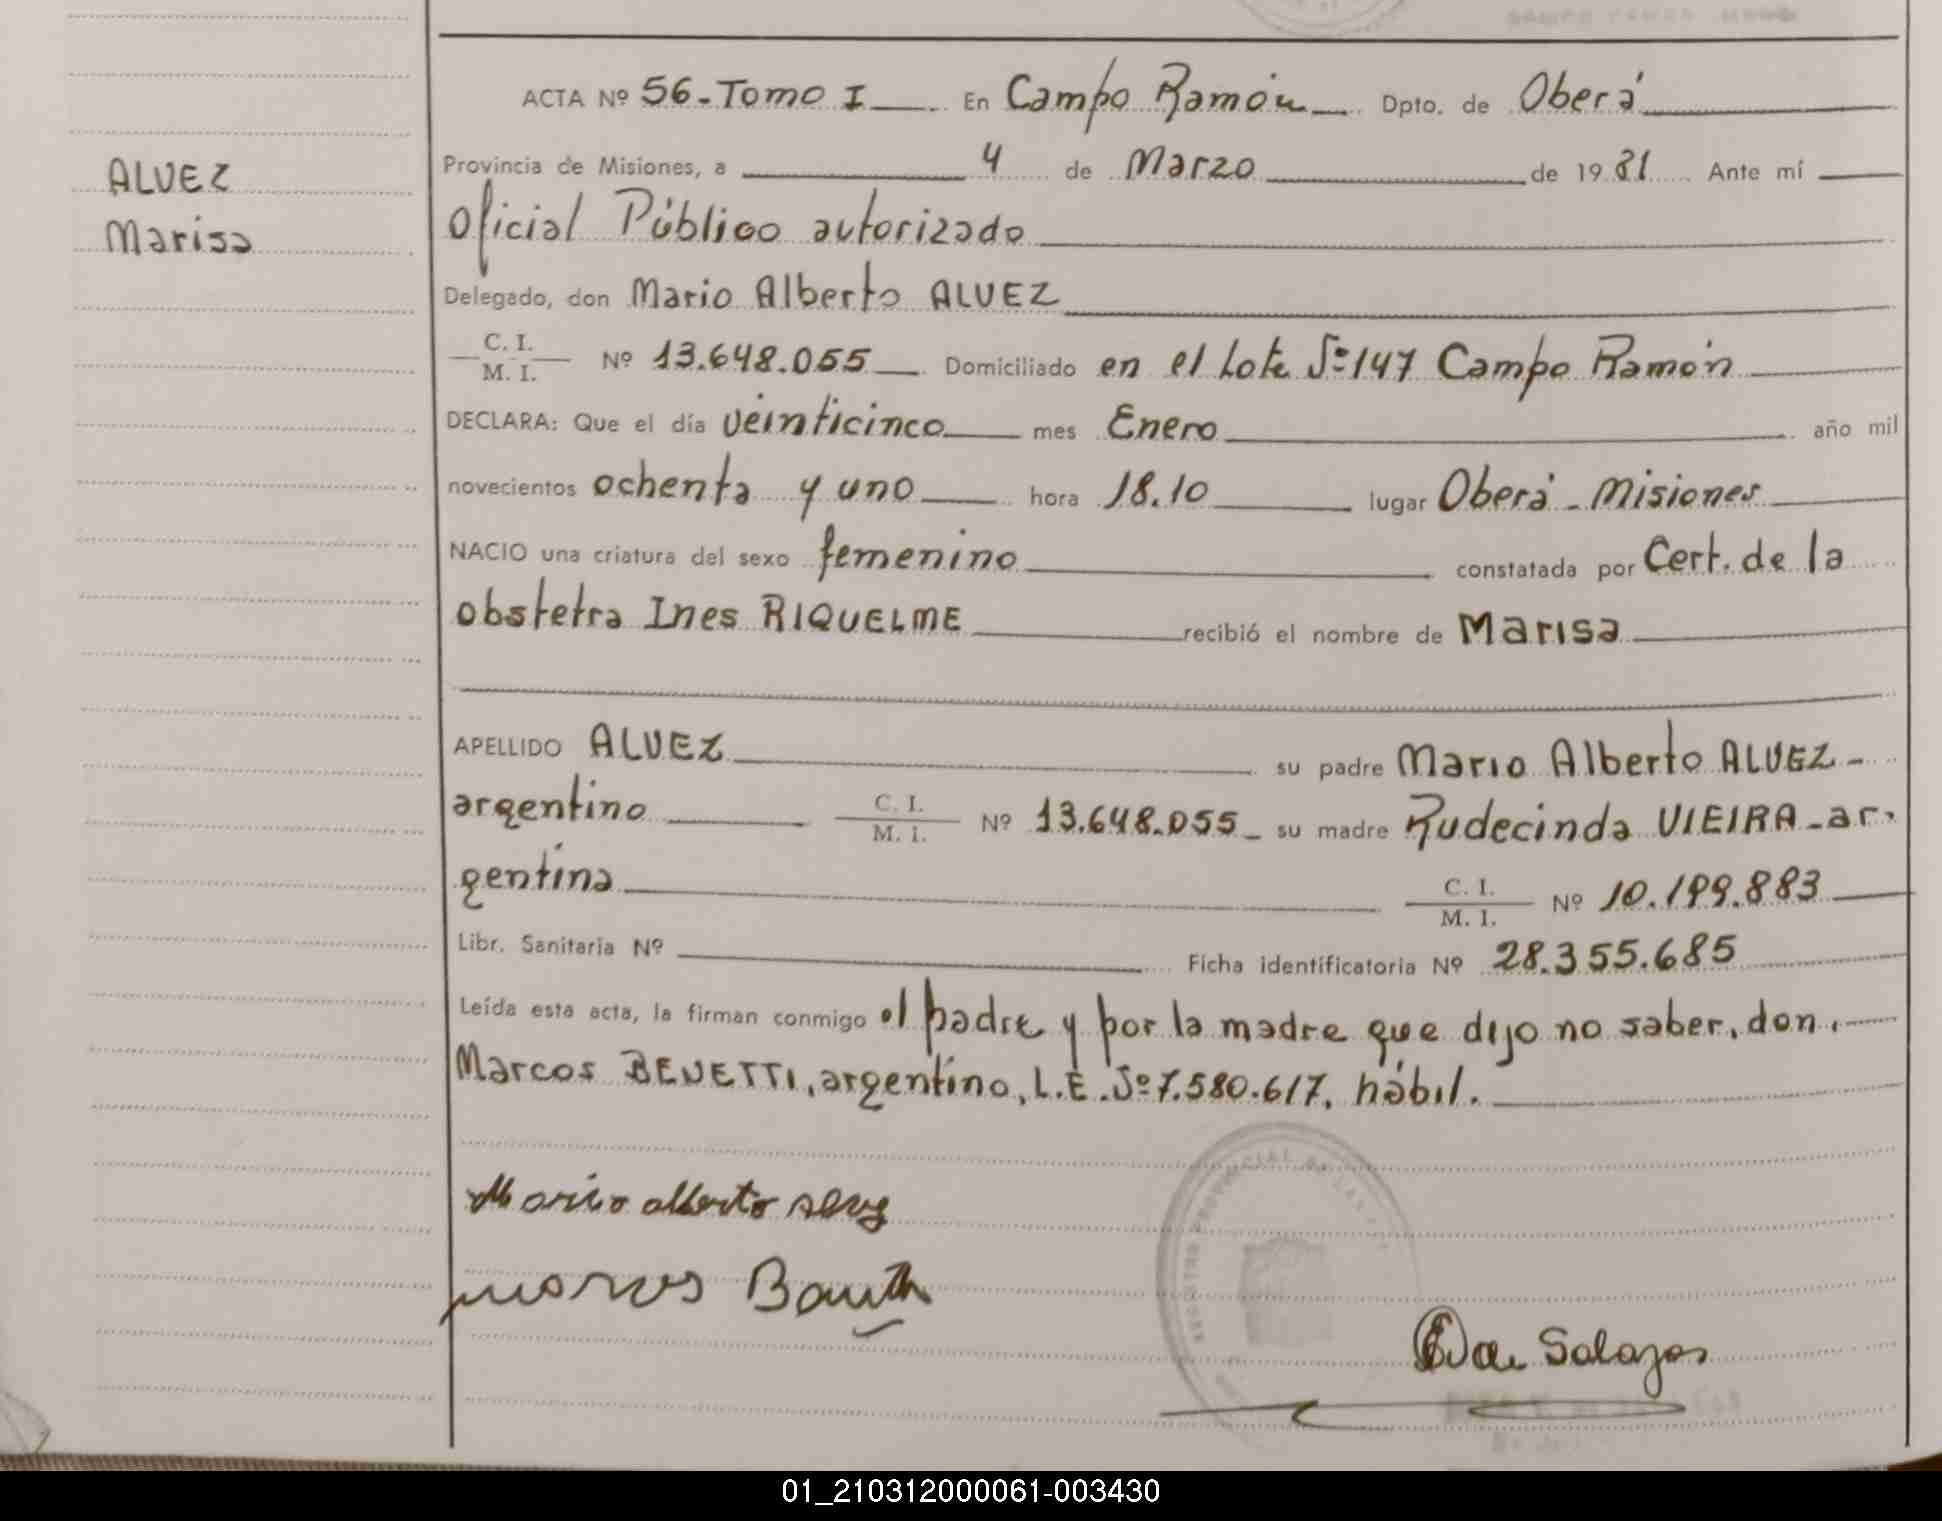 ACTA Nº 56-Tomo I En Campo Ramón Dpto. de Oberá
Provincia de Misiones, a 4 de Marzo de 1981 Ante mí
Oficial Público autorizado
Delegado, don Mario Alberto ALVEZ
C. I.
M. I.
Nº 13.648.055 Domiciliado en el Lote Nº 147 Campo Ramón
DECLARA: Que el día veinticinco mes Enero año mil
novecientos ochenta y uno hora 18.10 lugar Oberá - Misiones
NACIO una criatura del sexo femenino constatada por Cert. de la
obstetra Ines RIQUELME recibió el nombre de Marisa
APELLIDO ALVEZ su padre Mario Alberto ALVEZ -
argentino C. I.
M. I.
Nº 13.648.055 - su madre Rudecinda VIEIRA - ar-
gentina C. I.
M. I.
Nº 10.199.883
Libr. Sanitaria Nº Ficha identificatoria Nº 28.355.685
Leída esta acta, la firman conmigo el padre y por la madre que dijo no saber, don.
Marcos BENETTI, argentino, L.E. Nº 7.580.617, hábil.
Mario alberto
marcos
de Salazar
ALVEZ
Marisa
01_210312000061-003430